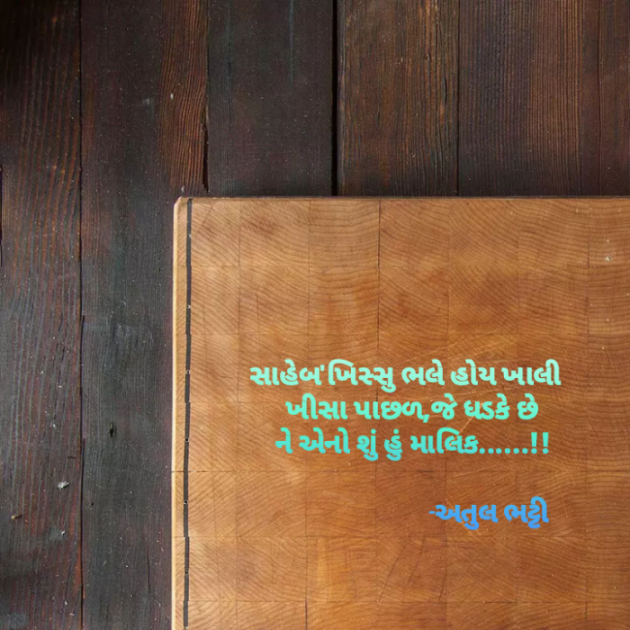 સાહેબ'ખિસ્સુ ભલે હોય ખાલી
ખીસા પાછળ,જે ધડકે છે
ને એનો શું હું માલિક......!!
-અતુલ ભટ્ટી